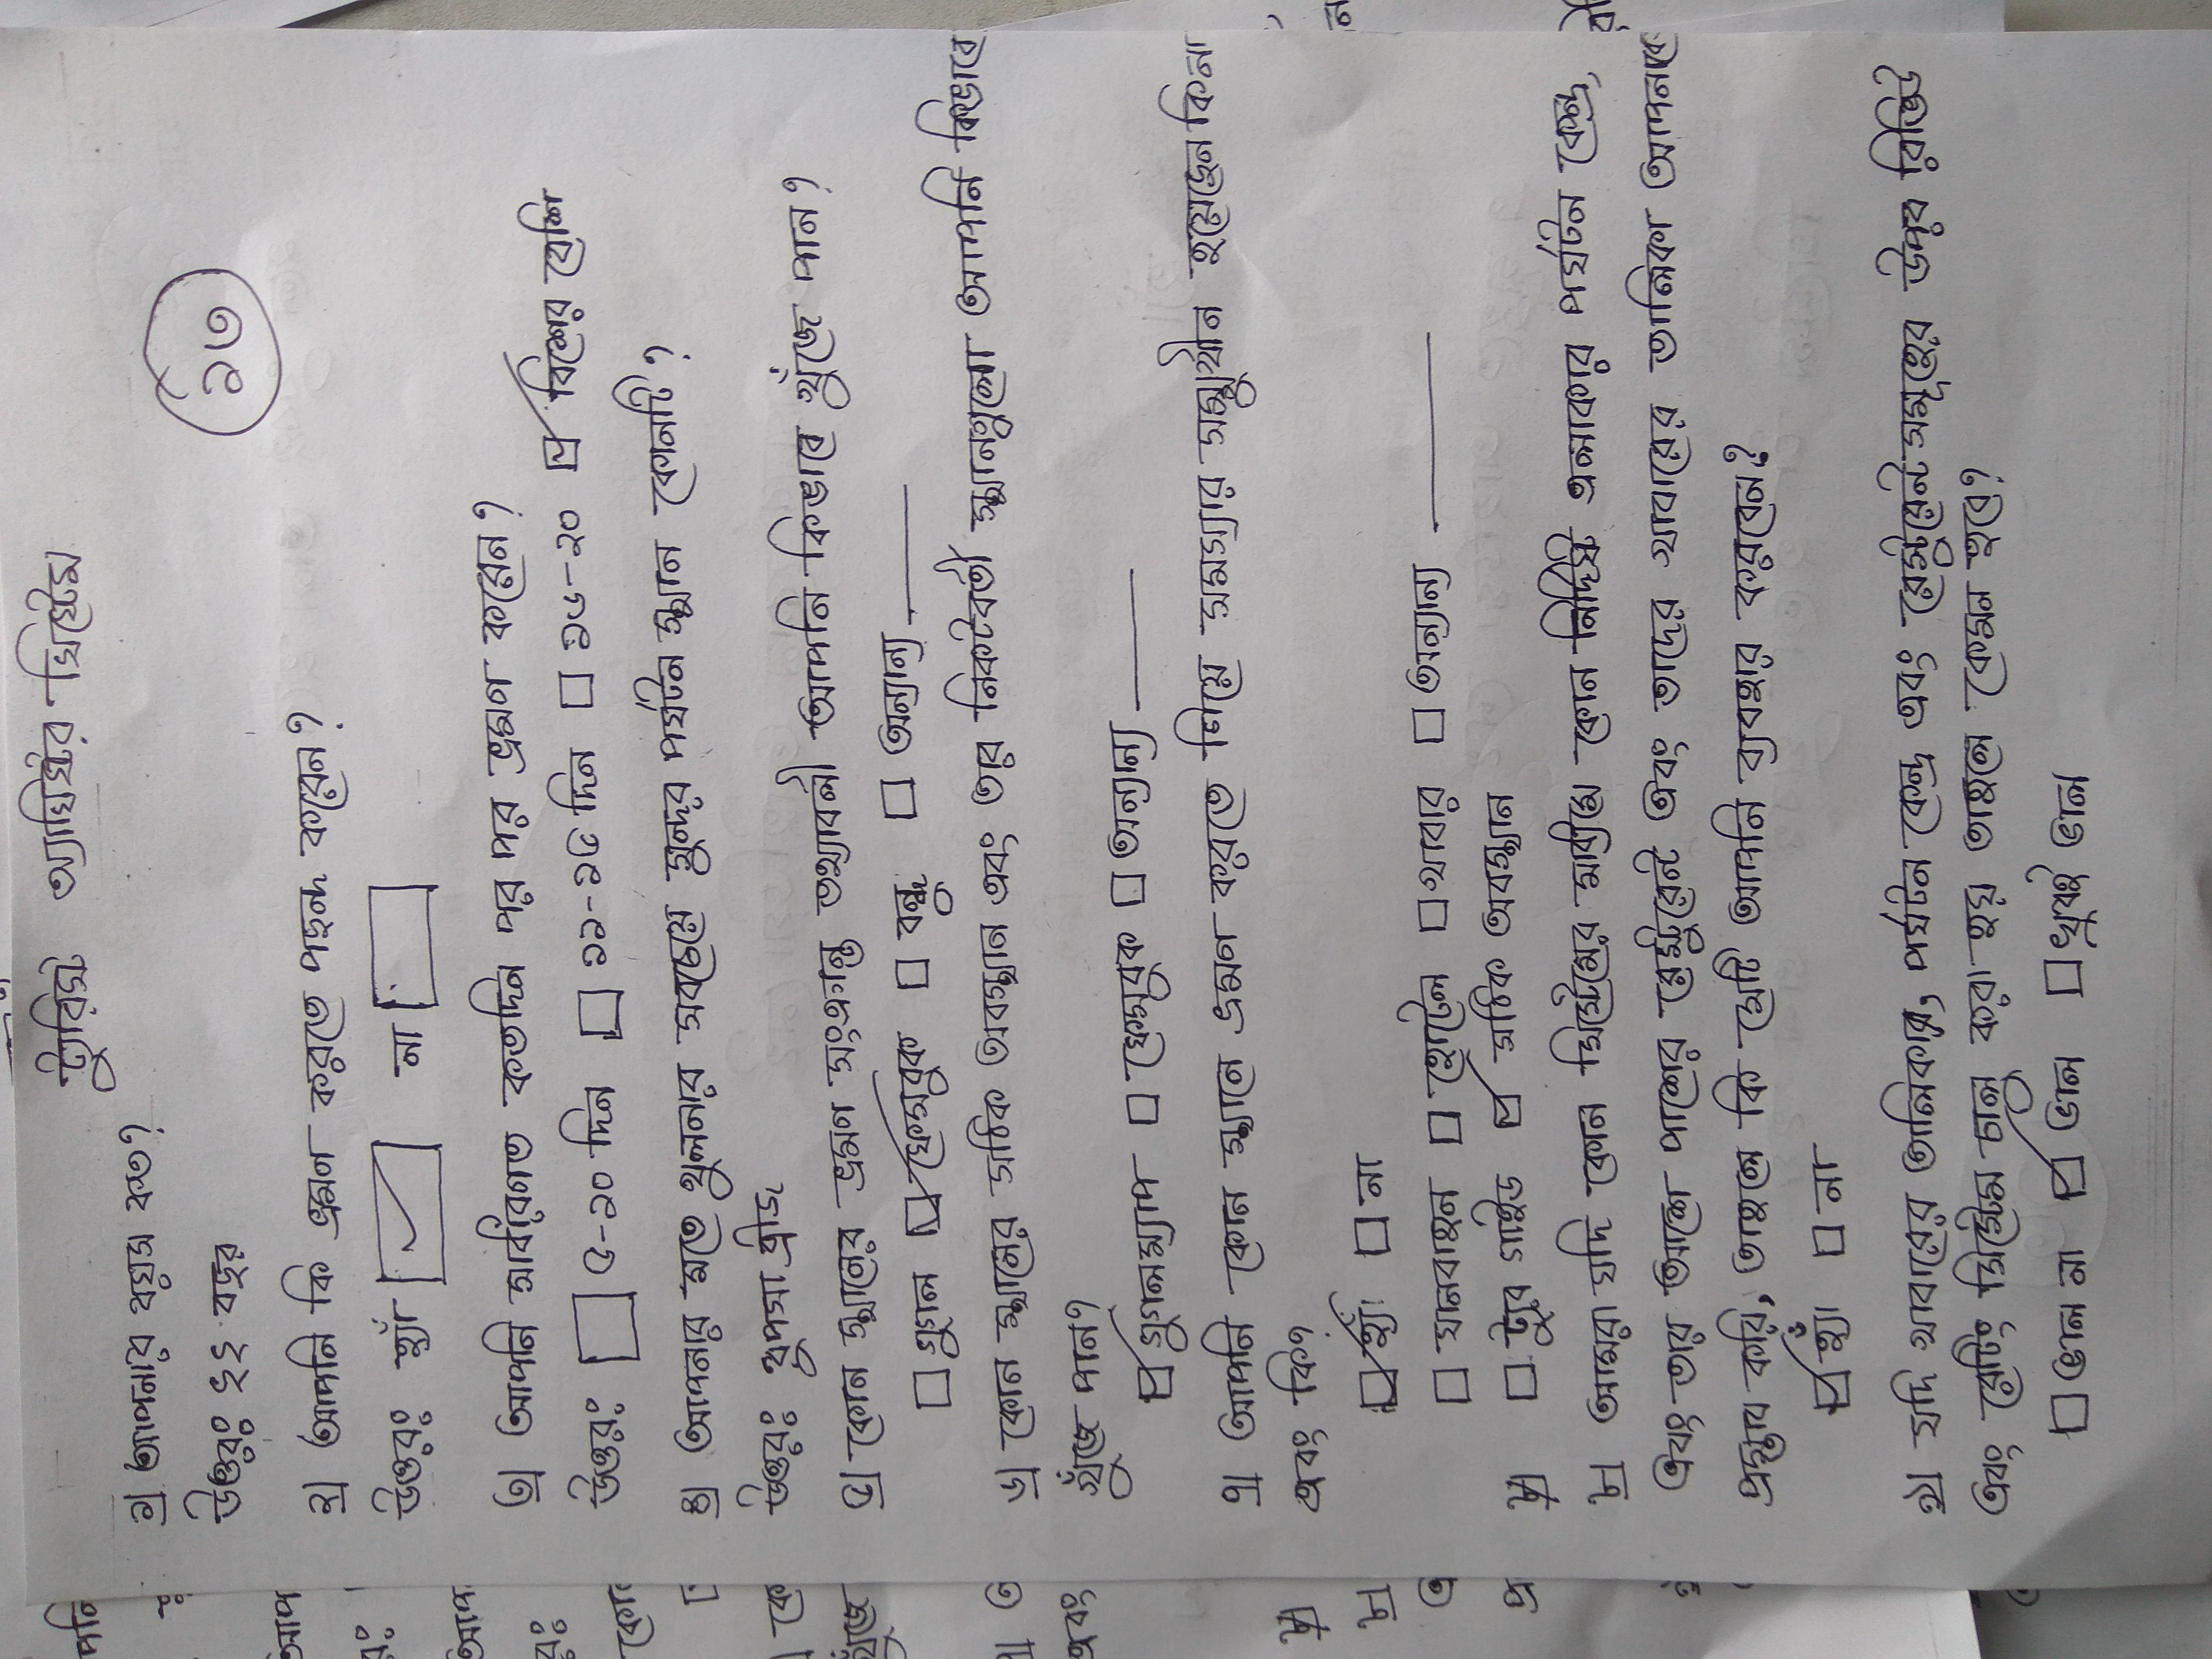 ট্যুরিস্ট অ্যাসিস্টর সিস্টেম
১৩
১| আপনার বয়স কত?
উত্তরঃ ২২ বছর
২| আপনি কি ভ্রমন করতে পছন্দ করেন?
উত্তরঃ হ্যাঁ না
৩| আপনি সাধারণত কতদিন পর পর ভ্রমণ করেন?
উত্তরঃ ৫-১০ দিন ১১-১৫ দিন ১৬-২০ বিশের বেশি
৪| আপনার মতে খুলনার সবচেয়ে সুন্দর পর্যটন স্থান কোনটি?
উত্তরঃ রুপসা ব্রীজ
৫| কোন স্থানের ভ্রমন সংক্রান্ত তথ্যাবলী আপনি কিভাবে খুঁজে পান?
গুগল ফেসবুক বন্ধু অন্যান্য
৬| কোন স্থানের সঠিক অবস্থান এবং তার নিকটবর্তী স্থানগুলো আপনি কিভাবে
খুঁজে পান?
গুগলম্যাপ ফেসবুক অন্যান্য
৭| আপনি কোন স্থানে ভ্রমন করতে গিয়ে সমস্যার সম্মুখীন হয়েছেন কিনা
এবং কি?
হ্যাঁ না
যানবাহন হোটেল খাবার অন্যান্য
ট্যুর গাইড সঠিক অবস্থান
৮| আমরা যদি কোন সিস্টেমের মাধ্যমে কোন নির্দিষ্ট এলাকার পর্যটন কেন্দ্র,
এবং তার আশে পাশের রেস্টুরেন্ট এবং তাদের খাবারের তালিকা আপনাকে
প্রস্তাব করি, তাহলে কি সেটি আপনি ব্যবহার করবেন?
হ্যাঁ না
৯| যদি খাবারের তালিকায়, পর্যটন কেন্দ্র এবং রেস্টুরেন্ট সমূহের উপর রিভিউ
এবং রেটিং সিস্টেম চালু করা হয় তাহলে কেমন হবে?
ভাল না ভাল খুবই ভাল